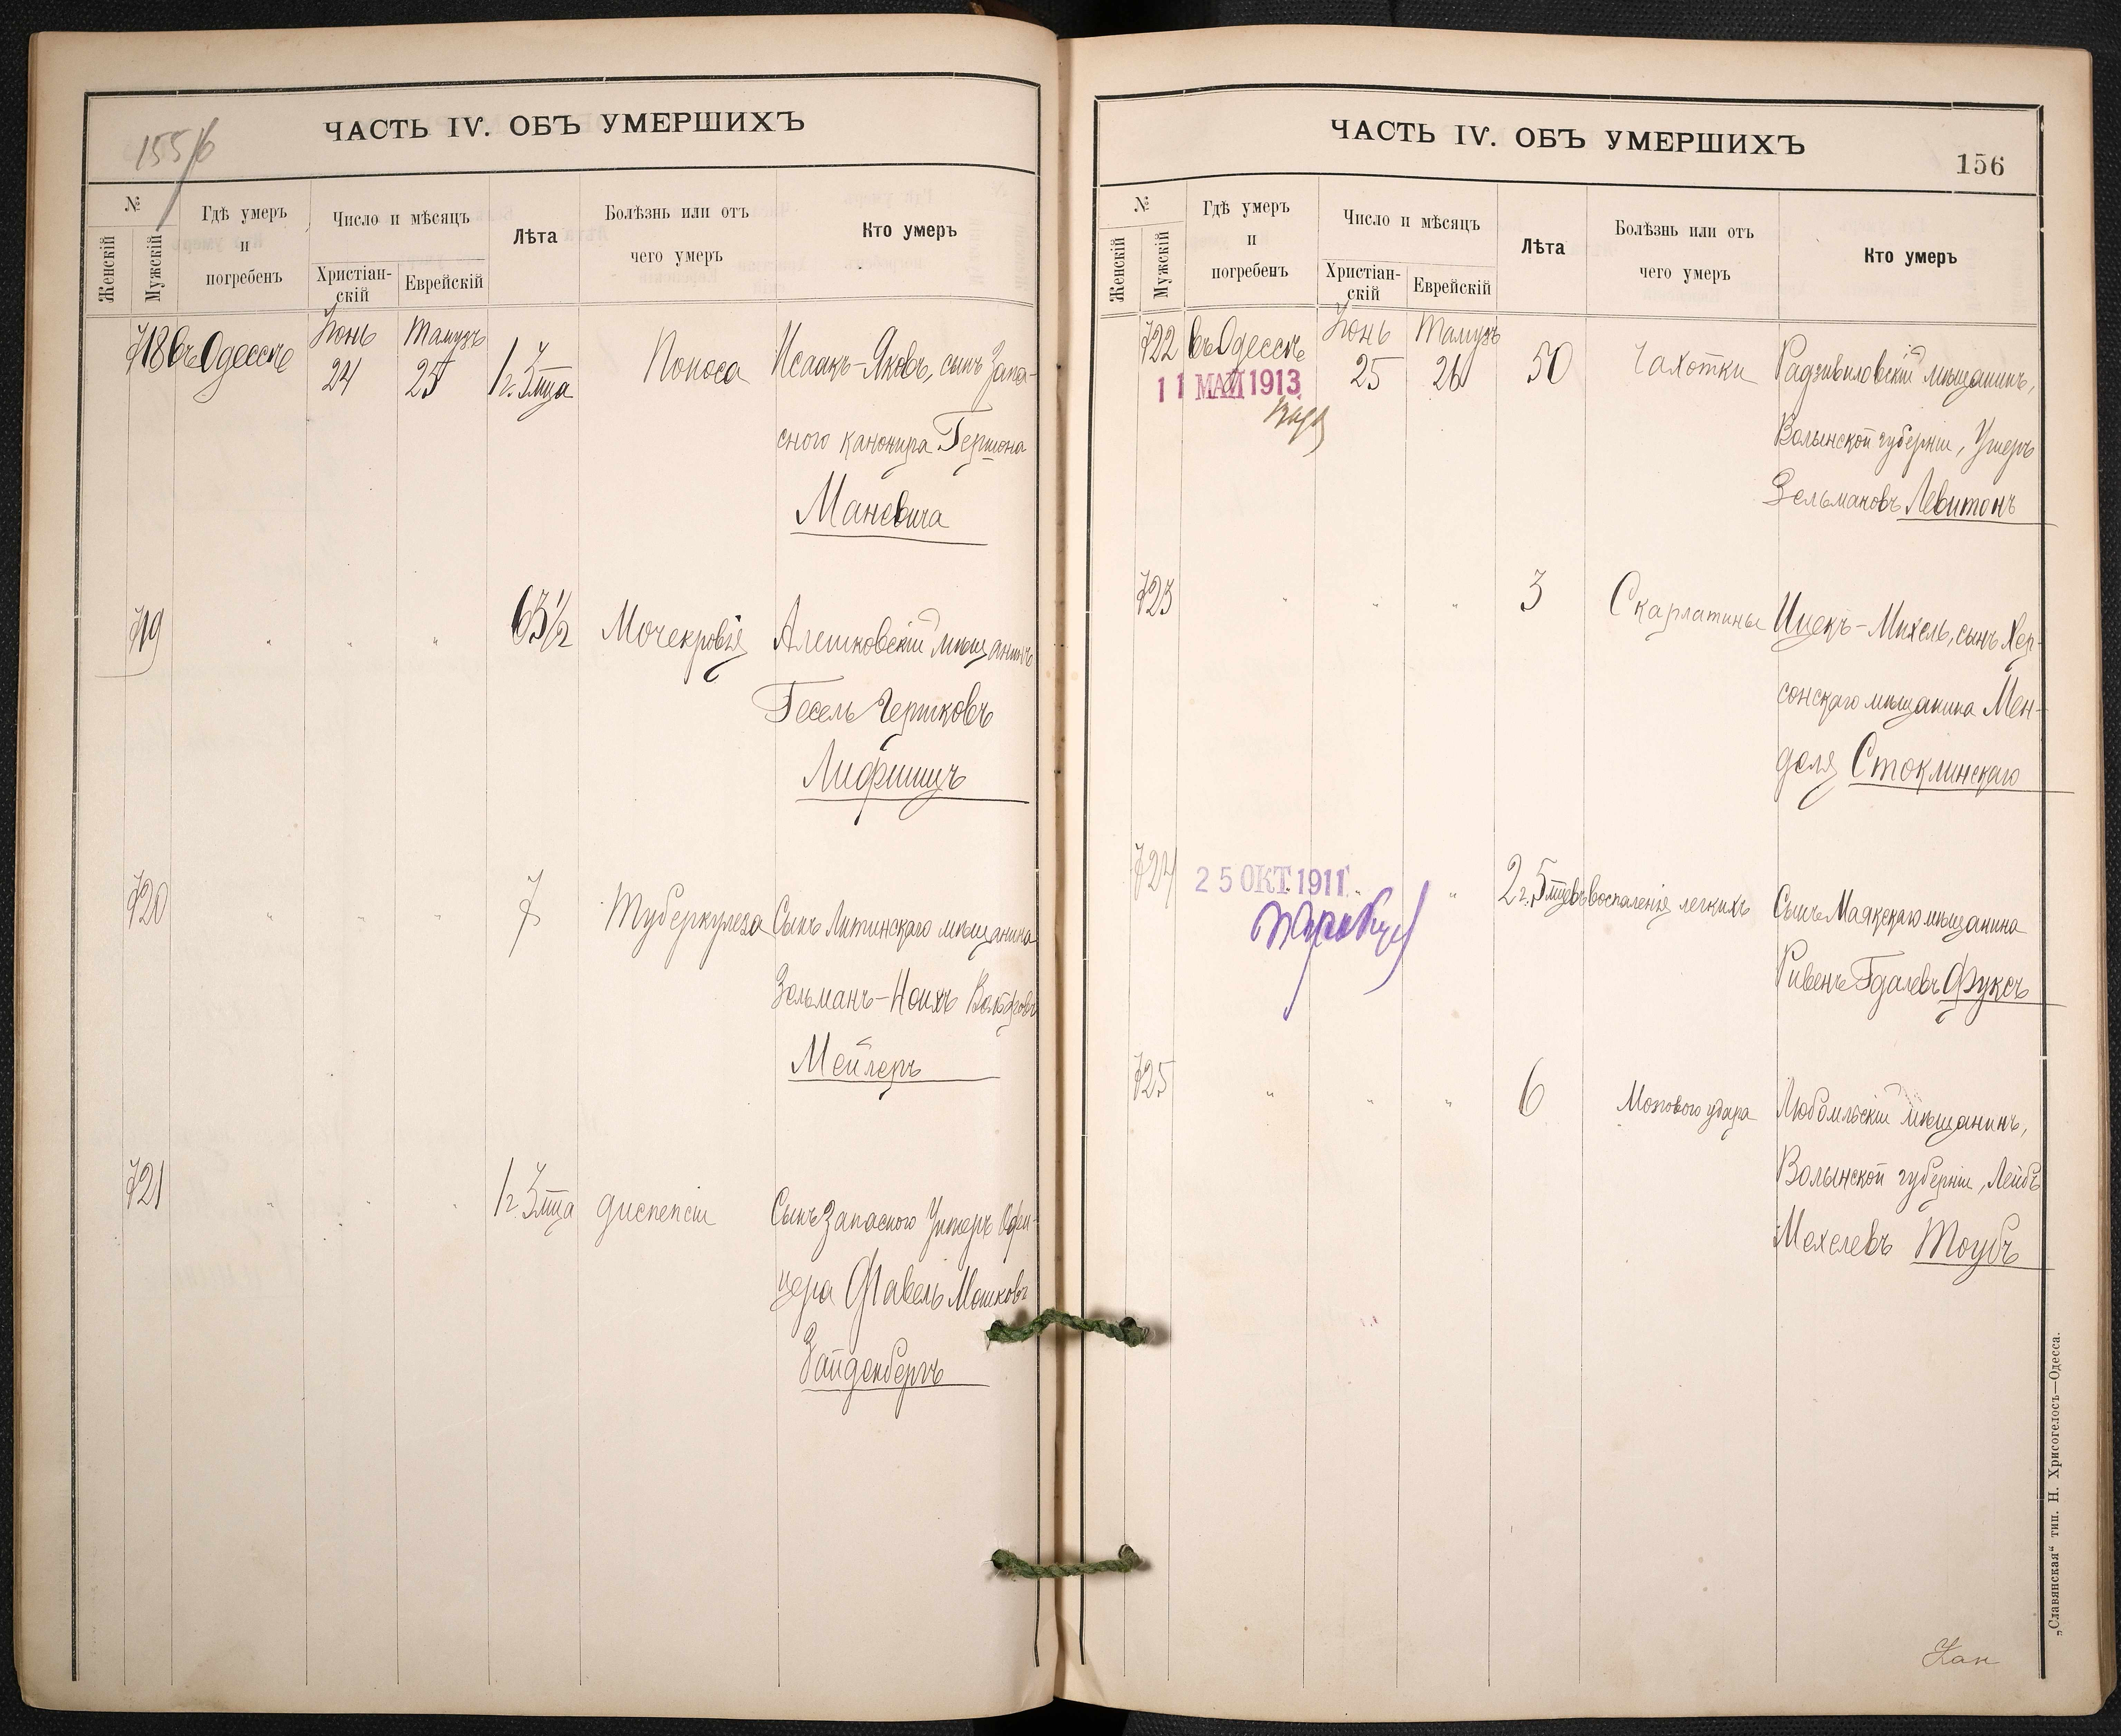 155/б
ЧАСТЬ IV. ОБЪ УМЕРШИХЪ
№
Женскій
Мужскій
Гдѣ умеръ
и
погребенъ
Число и мѣсяцъ
Христіан-
скій
Еврейскій
Лѣта
Болѣзнь или отъ
чего умеръ
Кто умеръ
718 въ Одессѣ Іюнь 24 Тамузъ 25 1 г. 3 м-ца Поноса Исаакъ-Яковъ, сынъ Запа-
сного канонира Гершона
Маневича
719 " " " 63½ Мочекровія Алешковскій мѣщанинъ
Гесель Гершковъ
Лифшицъ
720 " " " 7 Туберкулеза Сынъ Литинскаго мѣщанина
Зельманъ-Ноихъ
Мейлеръ
721 " " " 1 г. 3 м-ца диспепсіи Сынъ Запаснаго Унтеръ Офи-
цера Фавель Мошковъ
Зайденбергъ
ЧАСТЬ IV. ОБЪ УМЕРШИХЪ
156
№
Женскій
Мужскій
Гдѣ умеръ
и
погребенъ
Число и мѣсяцъ
Христіан-
скій
Еврейскій
Лѣта
Болѣзнь или отъ
чего умеръ
Кто умеръ
722 въ Одессѣ Іюнь 25 Тамузъ 26 50 Чахотки Радзивиловскій мѣщанинъ,
11 МАЙ 1913
Волынской губерніи, Ушеръ
Зельмановъ Левитонъ
723 " " " 3 Скарлатины Ицекъ-Михель, сынъ Хер-
сонскаго мѣщанина Мен-
деля Стоклинскаго
724 25 ОКТ. 1911 " " 2 г. 5 м-цевъ воспаленія легкихъ Сынъ Маякскаго мѣщанина
Ривенъ Гдалевъ Фуксъ
725 " " " 6 Мозгового удара Любомльскій мѣщанинъ,
Волынской губерніи, Лейбъ
Мехелевъ Тоубъ
„Славянская“ тип. Н. Хрисогелосъ—Одесса.